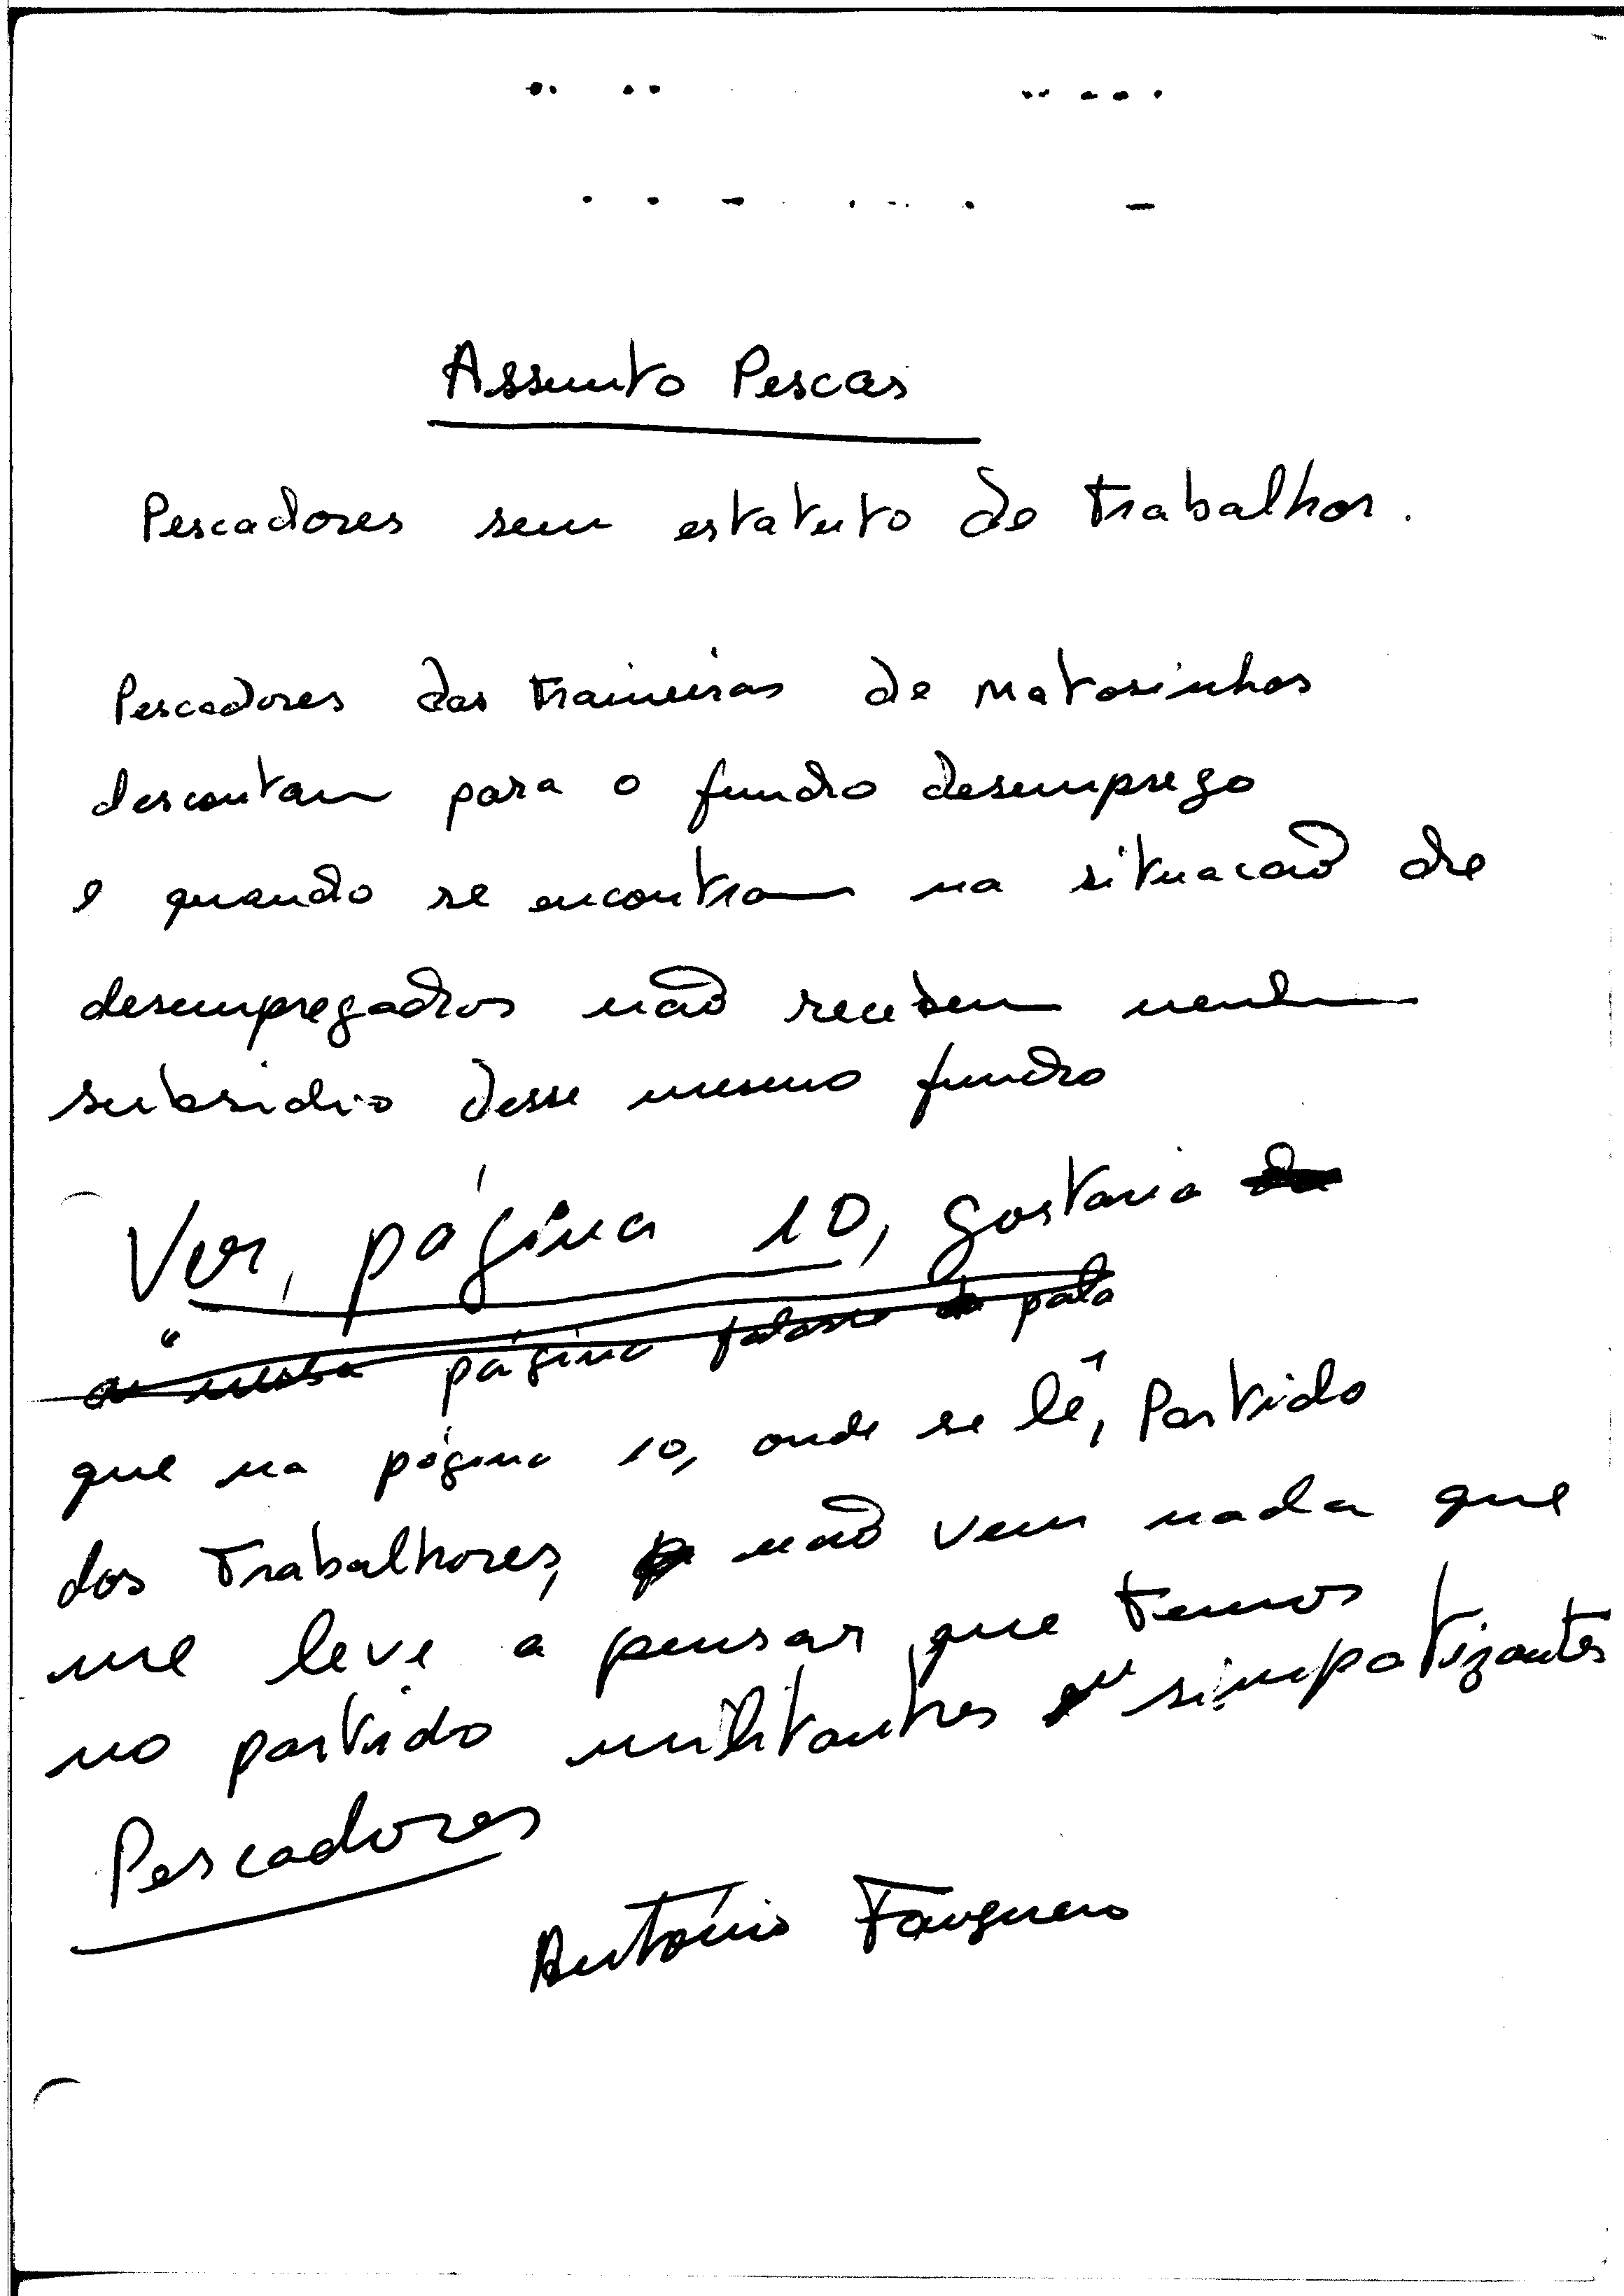 Assunto Pescas
Pescadores sem estatuto de trabalhor.
Pescadores das traineiras de Matosinhos
descontam para o fundo desemprego
e quando se encontram na situacaõ de
desempregados naõ recebem nenhum
subsidio desse mesmo fundo
Ver, página 10, gostaria
página
que na página 10, onde se lê, Partido
dos Trabalhores, naõ vem nada que
me leve a pensar que temos
no partido militantes ou simpatizantes
Pescadores
António